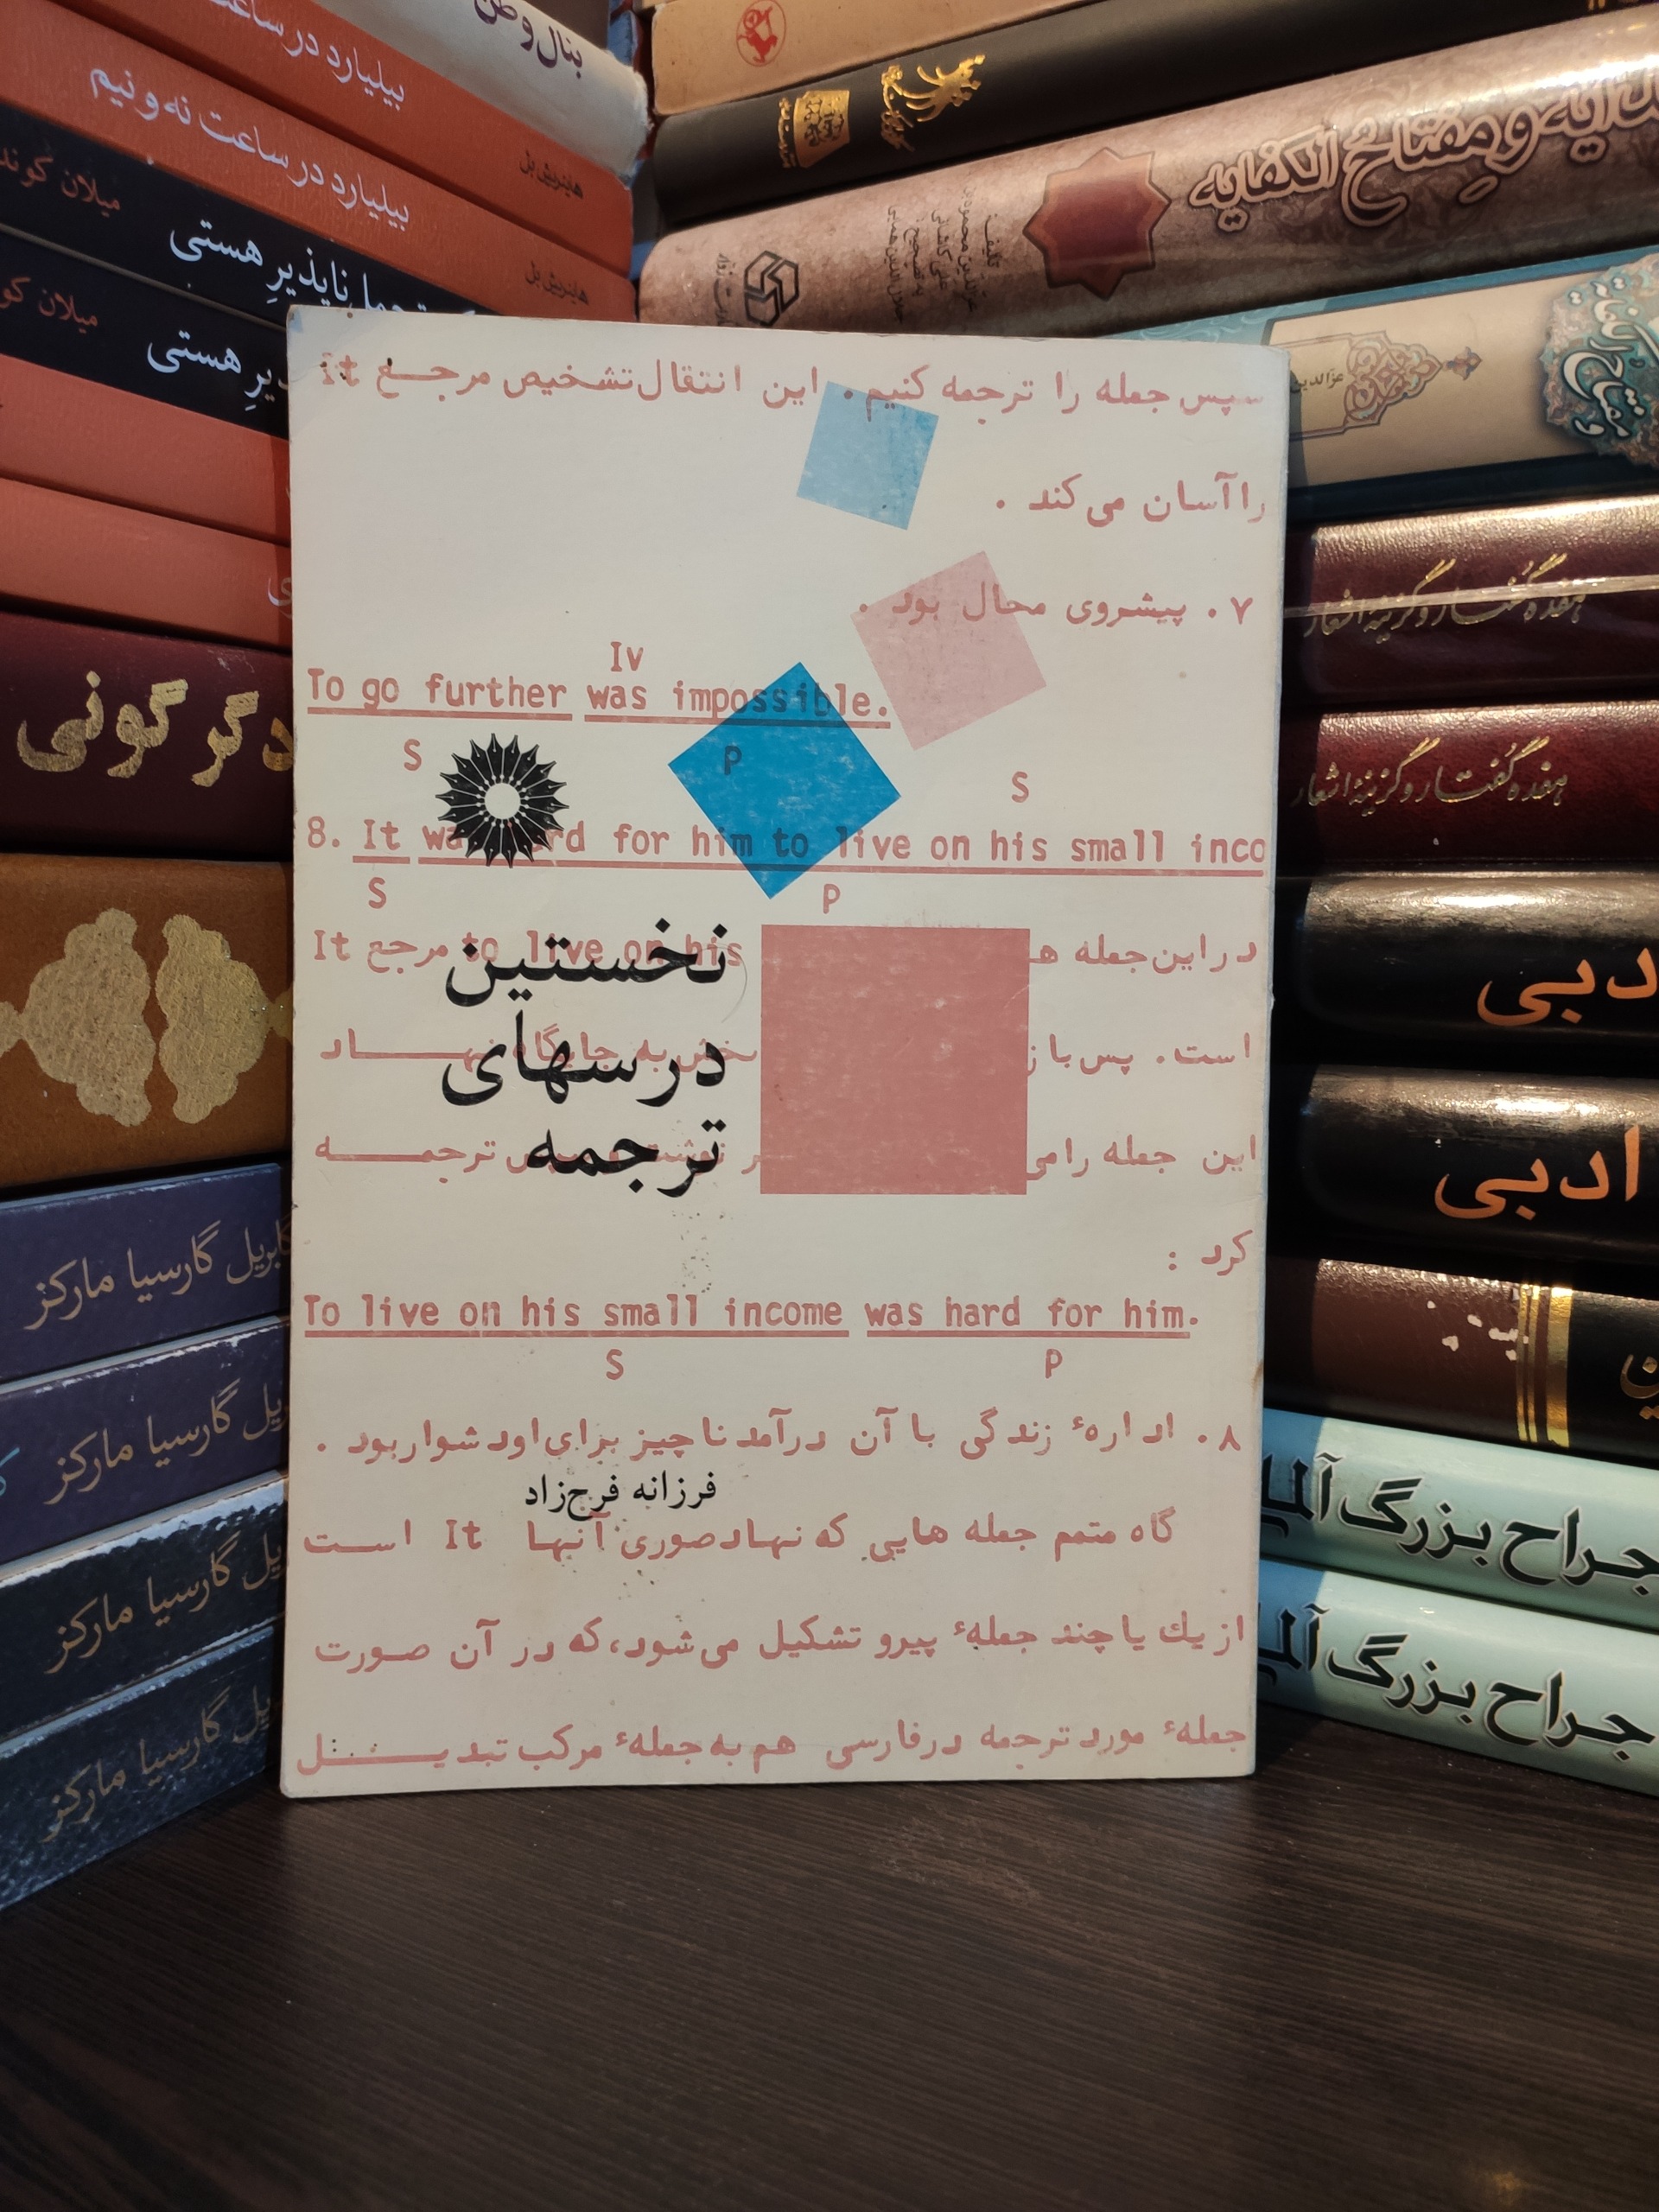 بیلیارد در ساعت
بیلیارد در ساعت نه و نیم
هاینریش بل
هاینریش بل
میلان
هستی
میلان
هستی
دگرگونی
گابریل گارسیا مارکز
گارسیا مارکز
گارسیا مارکز
گارسیا مارکز
و مفتاح الکفایه
عزالدین
هفده گفتار و گزینه اشعار
هفده گفتار و گزینه اشعار
ادبی
جراح بزرگ
جراح بزرگ
سپس جمله را ترجمه کنیم. این انتقال تشخیص مرجع It
را آسان می‌کند .
۷. پیشروی محال بود .
Iv
To go further was impossible.
S P
S
8. It wa rd for him to live on his small inco
S P
در این جمله ه to live on his مرجع It
است. پس با ز بخش به جایگاه نهاد
این جمله را می ترجمه
کرد :
نخستین
درسهای
ترجمه
To live on his small income was hard for him.
S P
۸. ادارهٔ زندگی با آن درآمد ناچیز برای او دشوار بود .
فرزانه فرح‌زاد
گاه متمم جمله هایی که نهاد صوری آنها It است
از یك یا چند جملهٔ پیرو تشکیل می‌شود، که در آن صورت
جملهٔ مورد ترجمه در فارسی هم به جملهٔ مرکب تبدیل